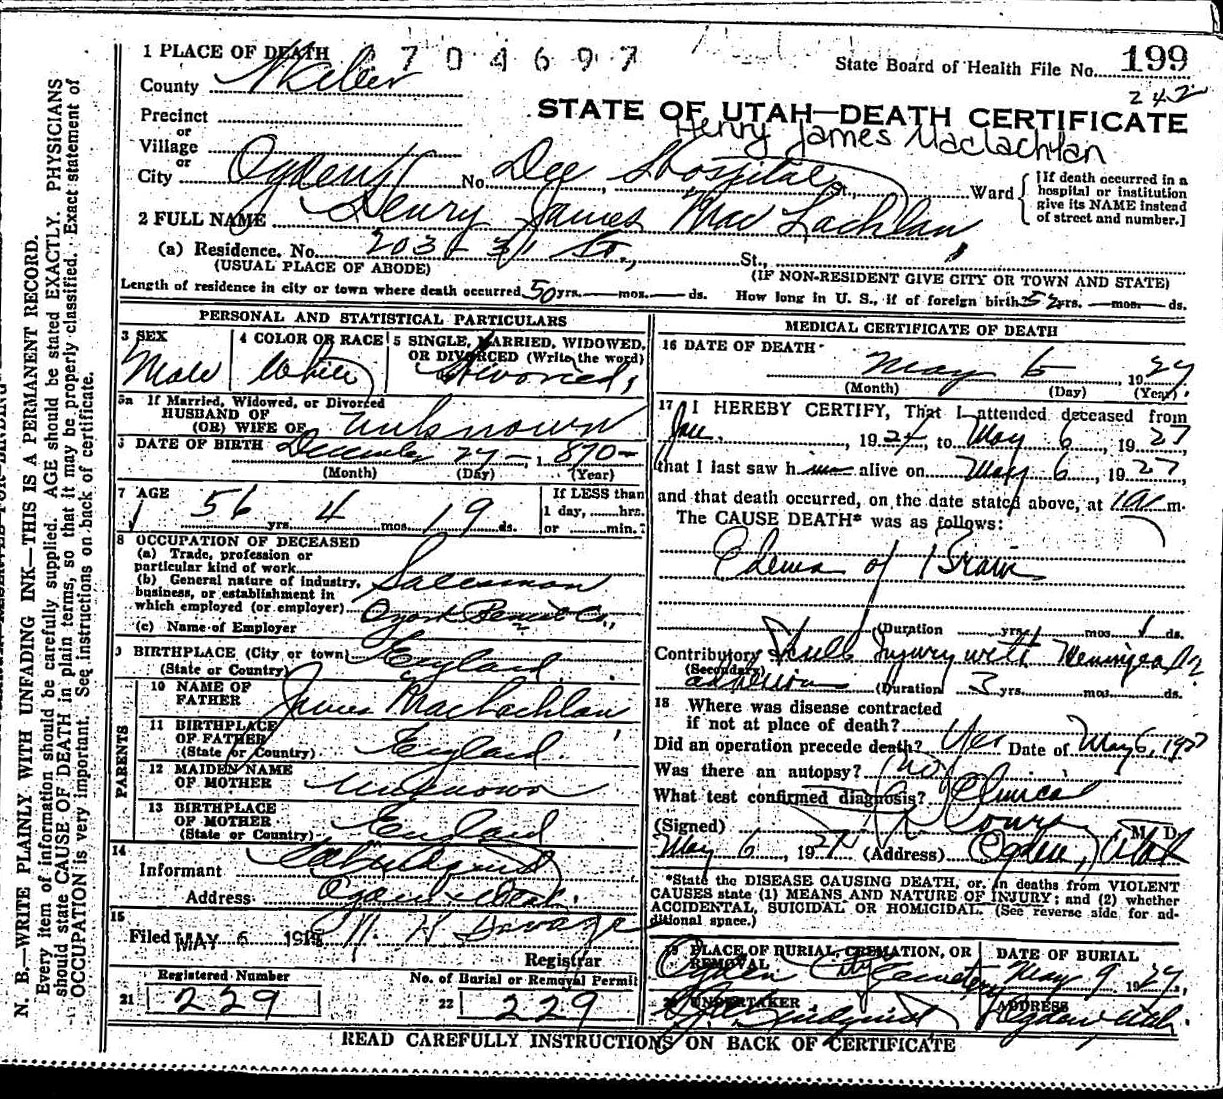 1 PLACE OF DEATH 704697
State Board of Health File No. 199
242
County Weber
STATE OF UTAH—DEATH CERTIFICATE
Henry James Maclachlan
Precinct
or
Village
or
City Ogden No. Dee Hospital St., Ward
[If death occurred in a
hospital or institution
give its NAME instead
of street and number.]
2 FULL NAME Henry James MacLachlan
(a) Residence. No. 203 - 31 St., St.,
(USUAL PLACE OF ABODE) (IF NON-RESIDENT GIVE CITY OR TOWN AND STATE)
Length of residence in city or town where death occurred 50 yrs. — mos. — ds. How long in U. S., if of foreign birth 52 yrs. — mos. — ds.
PERSONAL AND STATISTICAL PARTICULARS
3 SEX
Male
4 COLOR OR RACE
White
5 SINGLE, MARRIED, WIDOWED,
OR DIVORCED (Write the word)
Divorced
5a If Married, Widowed, or Divorced
HUSBAND OF
(OR) WIFE OF Unknown
6 DATE OF BIRTH December 27 - 1870 -
(Month) (Day) (Year)
7 AGE
56 yrs. 4 mos. 19 ds.
If LESS than
1 day, hrs.
or min.?
8 OCCUPATION OF DECEASED
(a) Trade, profession or
particular kind of work
Salesman
(b) General nature of industry,
business, or establishment in
which employed (or employer)
(c) Name of Employer
9 BIRTHPLACE (City or town)
(State or Country) England
PARENTS
10 NAME OF
FATHER James MacLachlan
11 BIRTHPLACE
OF FATHER
(State or Country) England
12 MAIDEN NAME
OF MOTHER Unknown
13 BIRTHPLACE
OF MOTHER
(State or Country) England
14
Informant
Address Ogden Utah
15
Filed MAY 6 191
Registrar
Registered Number
21 229
No. of Burial or Removal Permit
22 229
MEDICAL CERTIFICATE OF DEATH
16 DATE OF DEATH
May 6, 1927
(Month) (Day) (Year)
17 I HEREBY CERTIFY, That I attended deceased from
Jan., 1924, to May 6, 1927
that I last saw him alive on May 6, 1927,
and that death occurred, on the date stated above, at m.
The CAUSE DEATH* was as follows:
Edema of Brain
(Duration yrs. mos. 1 ds.
Contributory Skull Injury with Meningeal
(Secondary)
adhesion (Duration 3 yrs. mos. ds.
18 Where was disease contracted
if not at place of death?
Did an operation precede death? Yes Date of May 6, 1927
Was there an autopsy? No
What test confirmed diagnosis? Clinical
(Signed) M. D.
May 6, 1927 (Address) Ogden, Utah
*State the DISEASE CAUSING DEATH, or, in deaths from VIOLENT
CAUSES state (1) MEANS AND NATURE OF INJURY; and (2) whether
ACCIDENTAL, SUICIDAL OR HOMICIDAL. (See reverse side for ad-
ditional space.)
19 PLACE OF BURIAL, CREMATION, OR
REMOVAL
Ogden City Cemetery
DATE OF BURIAL
May 9, 1927,
20 UNDERTAKER
Lindquist
ADDRESS
Ogden Utah.
READ CAREFULLY INSTRUCTIONS ON BACK OF CERTIFICATE
N. B.—WRITE PLAINLY WITH UNFADING INK—THIS IS A PERMANENT RECORD.
Every item of information should be carefully supplied. AGE should be stated EXACTLY. PHYSICIANS
should state CAUSE OF DEATH in plain terms, so that it may be properly classified. Exact statement of
OCCUPATION is very important. See instructions on back of certificate.